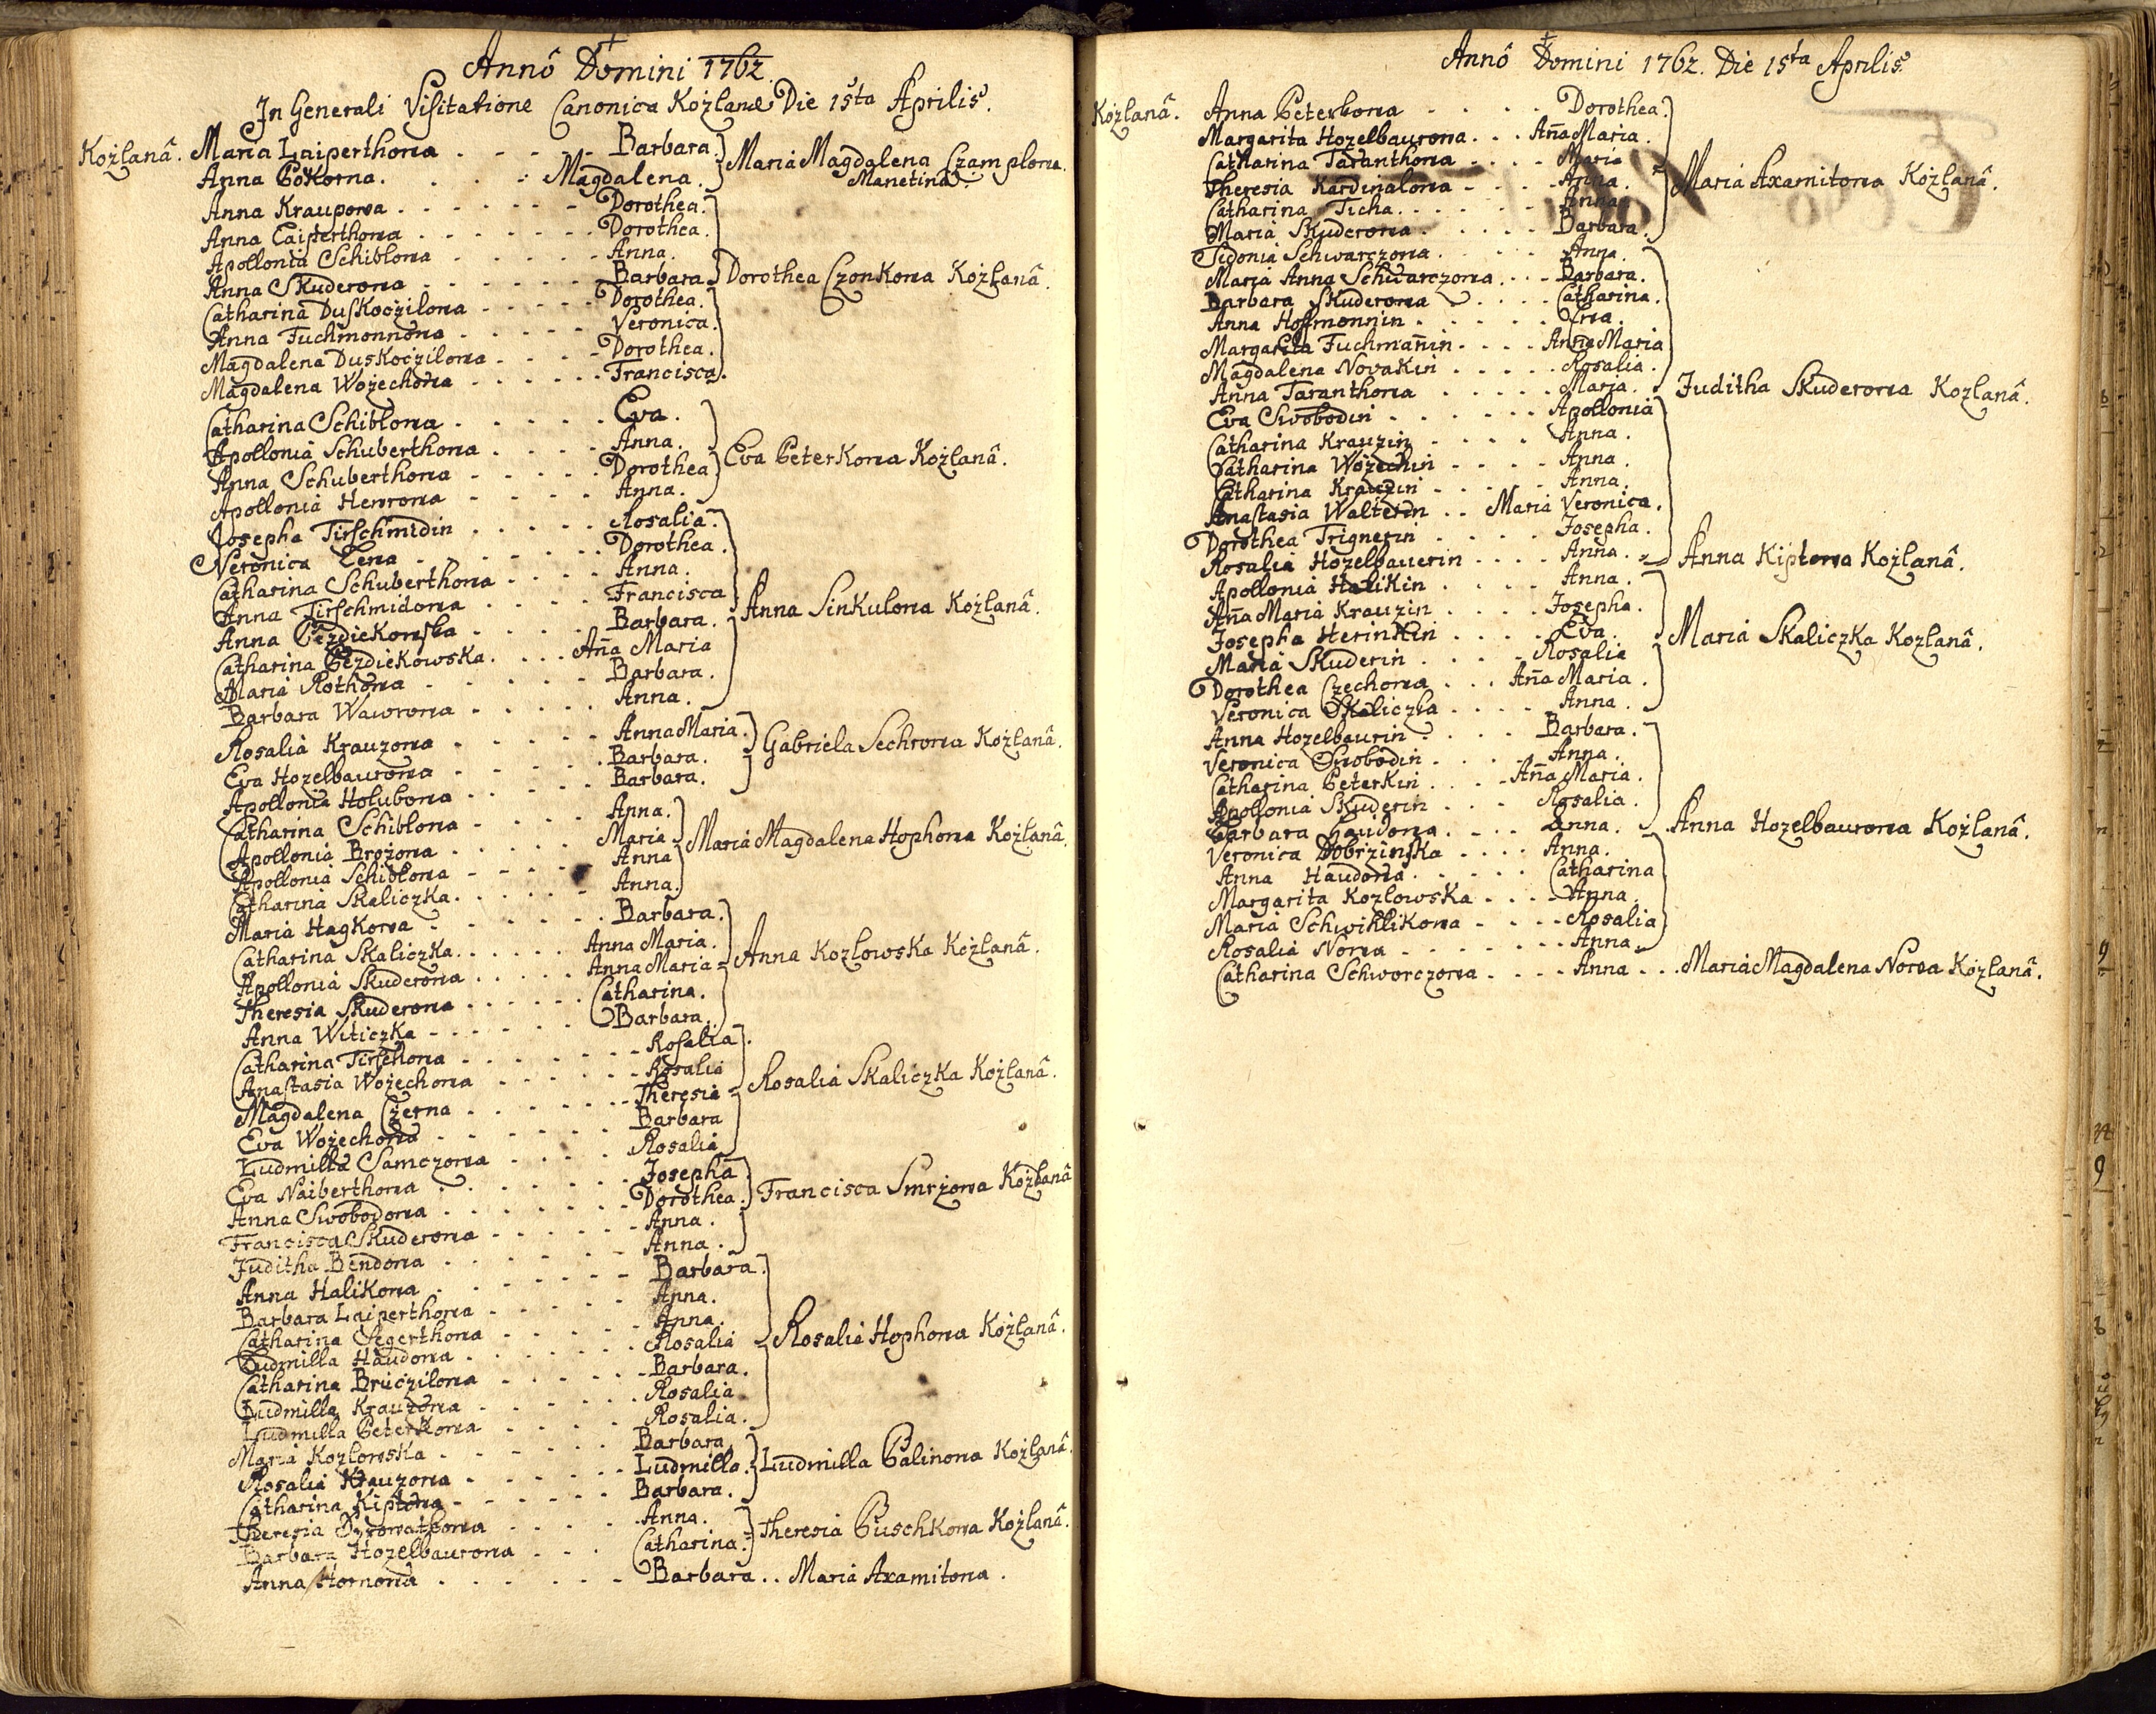 Annô Domini 1762.
In Generali Visitatione Canonica Kożlanæ Die 15ta Aprilis.
Kożlanâ. Maria Laiperthowa . . . . . Barbara. Maria Magdalena Czamplowa.
Anna Pokorna. . . . . Magdalena. Manetina.
Anna Kraupowa . . . . . . Dorothea.
Anna Laiperthowa . . . . . . Dorothea.
Apollonia Schiblowa . . . . . Anna.
Anna Skuderowa . . . . . . Barbara. Dorothea Czonkowa Kożlanâ.
Catharina Duskoczilowa . . . . . Dorothea.
Anna Fuchmonnowa . . . . . Veronica.
Magdalena Duskoczilowa . . . . Dorothea.
Magdalena Wożechowa . . . . . . Francisca.
Catharina Schiblowa . . . . . . Eva.
Apollonia Schuberthowa . . . . Anna. Eva Peterkowa Kożlanâ.
Anna Schuberthowa . . . . . Dorothea
Apollonia Henrowa . . . . . Anna.
Josepha Tirschmidin . . . . . Rosalia.
Veronica Lena . . . . . . Dorothea.
Catharina Schuberthowa . . . . Anna.
Anna Tirschmidowa . . . . . Francisca
Anna Pezdiekowska . . . . . Barbara. Anna Sinkulowa Kożlanâ.
Catharina Pezdiekowska. . . . Aña Maria
Maria Rothowa . . . . . . Barbara.
Barbara Wawrowa . . . . . Anna.
Rosalia Krauzowa . . . . . Anna Maria. Gabriela Sechrowa Kożlanâ.
Eva Hozelbaurowa . . . . . Barbara.
Apollonia Holubowa . . . . . Barbara.
Catharina Schiblowa . . . . Anna.
Apollonia Brożowa . . . . . Maria Maria Magdalena Hophowa Kożlanâ.
Apollonia Schiblowa . . . . Anna
Catharina Skaliczka. . . . . . Anna.
Maria Hagkowa . . . . . . Barbara.
Catharina Skaliczka. . . . . . Anna Maria. Anna Kozlowska Kożlanâ.
Apollonia Skuderowa . . . . . Anna Maria
Theresia Skuderowa . . . . . . Catharina.
Anna Witiczka . . . . . . Barbara.
Catharina Tirschowa . . . . . . . Rosalia.
Anastasia Wożechowa . . . . . . Rosalia Rosalia Skaliczka Kożlanâ.
Magdalena Czerna . . . . . . . Theresia
Eva Wożechowa . . . . . . Barbara
Ludmilla Samczowa . . . . Rosalia
Eva Naiberthowa . . . . . . . Josepha
Anna Swobodowa . . . . . . . Dorothea. Francisca Smrżowa Kożlanâ
Francisca Skuderowa . . . . . . Anna.
Juditha Bendowa . . . . . . Anna.
Anna Halikowa . . . . . . . Barbara.
Barbara Laiperthowa . . . . . Anna.
Catharina Segerthowa . . . . . Anna.
Ludmilla Haudowa . . . . . . . Rosalia Rosalia Hophowa Kożlanâ.
Catharina Bruczilowa . . . . . Barbara.
Ludmilla Krauzowa . . . . . . Rosalia
Ludmilla Peterkowa . . . . . Rosalia.
Maria Kozlowska . . . . . . . Barbara.
Rosalia Krauzowa . . . . . . Ludmilla. Ludmilla Palinowa Kożlanâ.
Catharina Kiptowa . . . . . . Barbara.
Theresia . . . . Anna. Theresia Puschkowa Kożlanâ.
Barbara Hozelbaurowa . . . Catharina.
Anna Hornowa . . . . . . . Barbara . . Maria Axamitowa.
Annô Domini 1762. Die 15ta Aprilis.
Kożlanâ. Anna Peterkowa . . . . Dorothea.
Margarita Hozelbaurowa . . . Aña Maria.
Catharina Taranthowa . . . . Maria
Theresia Kardinalowa . . . . Anna. Maria Axamitowa Kożlanâ.
Catharina Ticha . . . . . . Anna.
Maria Skuderowa . . . . . Barbara.
Sidonia Schwarczowa . . . . Anna.
Maria Anna Schwarczowa . . . Barbara.
Barbara Skuderowa . . . . Catharina.
Anna Hoffmonnin . . . . . . Eva.
Margarita Fuchmañin . . . . Anna Maria
Magdalena Novakin . . . . . Rosalia.
Anna Taranthowa . . . . . Maria. Juditha Skuderowa Kozlanâ.
Eva Swobodin . . . . . . Apollonia
Catharina Krauzin . . . . Anna.
Catharina Wożechin . . . . Anna.
Catharina Krauzin . . . . . Anna.
Anastasia Walterin . . Maria Veronica.
Dorothea Trignerin . . . . Josepha.
Rosalia Hozelbauerin . . . . Anna. Anna Kiptowa Kożlanâ.
Apollonia Halikin . . . . Anna.
Aña Maria Krauzin . . . . Josepha.
Josepha Herinkin . . . . Eva. Maria Skaliczka Kozlanâ.
Maria Skuderin . . . . Rosalia
Dorothea Czechowa . . . Aña Maria.
Veronica Skaliczka . . . . Anna.
Anna Hozelbaurin . . . . Barbara.
Veronica Swobodin . . . . Anna.
Catharina Peterkin . . . . Aña Maria.
Apollonia Skuderin . . . Rosalia.
Barbara Haudowa . . . . Anna. Anna Hozelbaurowa Kożlanâ.
Veronica Dobrzinska . . . . Anna.
Anna Haudowa . . . . . Catharina
Margarita Kozlowska . . . . Anna
Maria Schwihlikowa . . . . Rosalia
Rosalia Nowa . . . . . . . Anna
Catharina Schworczowa . . . . Anna . . . Maria Magdalena Nowa Kożlanâ.